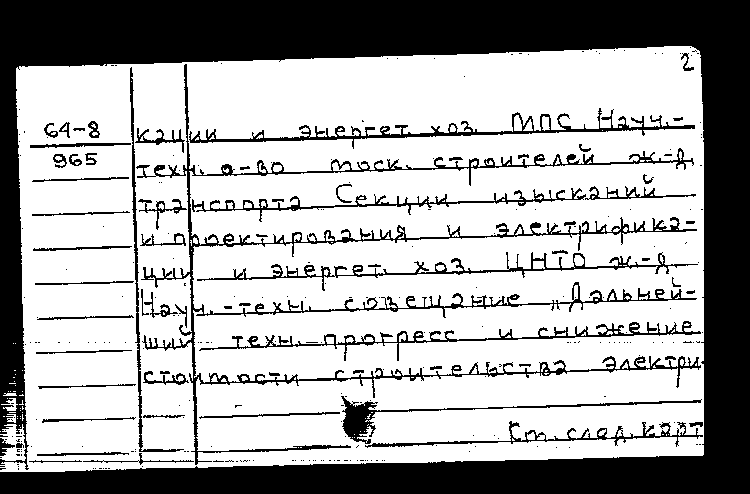 2
64-8 кации и энергет. хоз. МПС. Науч.-
965 техн. о-во моск. строителей ж.-д.
транспорта Секции изысканий
и проектирования и электрифика-
ции и энергет. хоз. ЦНТО ж.-д.
Науч.-техн. совещание „Дальней-
ший техн. прогресс и снижение
стоимости строительства электри-
См. след. карт